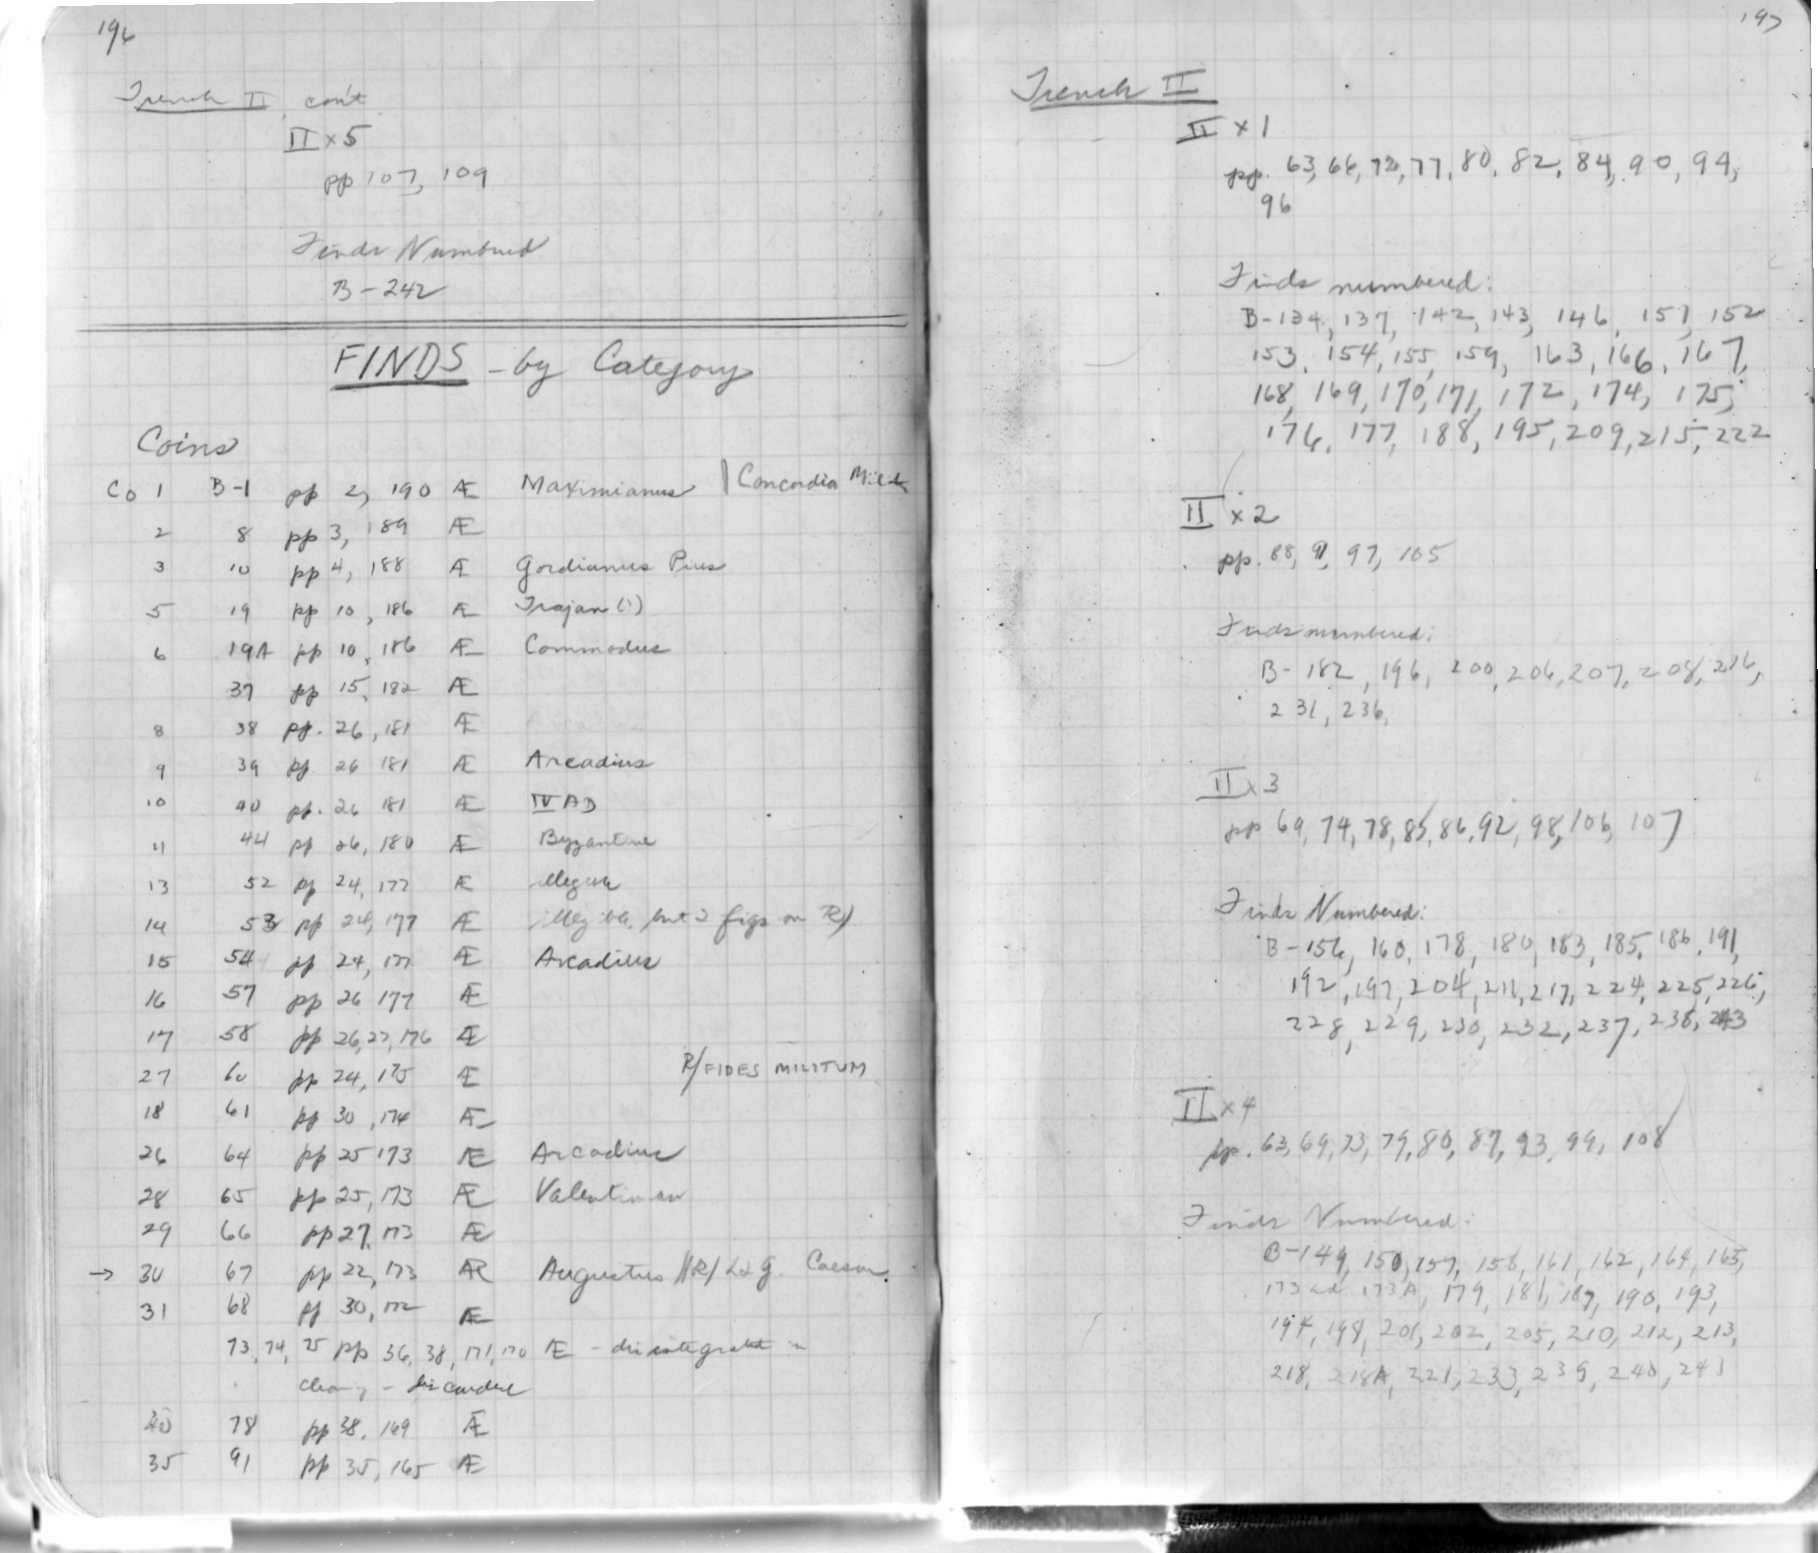 196
Trench II con't
II x 5
pp 107, 109
Finds Numbered
B-242
FINDS - by Category
Coins
Co 1 B-1 pp 2, 190 Æ Maximianus | Concordia Milit
2 8 pp 3, 189 Æ
3 10 pp 4, 188 Æ Gordianus Pius
5 19 pp 10, 186 Æ Trajan (?)
6 19A pp 10, 186 Æ Commodus
37 pp 15, 182 Æ
8 38 pp. 26, 181 Æ
9 39 pp 26 181 Æ Arcadius
10 40 pp. 26 181 Æ IV AD
11 44 pp 26, 180 Æ Byzantine
13 52 pp 24, 177 Æ illegible
14 53 pp 24, 177 Æ illegible, but 2 figs on R/
15 54 pp 24, 177 Æ Arcadius
16 57 pp 26 177 Æ
17 58 pp 26, 27, 176 Æ
27 60 pp 24, 175 Æ R/FIDES MILITUM
18 61 pp 30, 174 Æ
26 64 pp 25 173 Æ Arcadius
28 65 pp 25, 173 Æ Valentinian
29 66 pp 27, 173 Æ
→ 30 67 pp 22, 173 AR Augustus //R/ L & G. Caesar.
31 68 pp 30, 172 Æ
73, 74, 75 pp 36, 38, 171, 170 Æ - disintegrated in
cleaning - discarded
78 pp 38, 169 Æ
35 91 pp 35, 165 Æ
197
Trench II
II x 1
pp. 63, 66, 72, 77, 80, 82, 84, 90, 94,
96
Finds numbered:
B-134, 137, 142, 143, 146, 151, 152
153, 154, 155, 159, 163, 166, 167,
168, 169, 170, 171, 172, 174, 175,
176, 177, 188, 195, 209, 215, 222
II x 2
pp. 88, 91, 97, 105
Finds numbered:
B-182, 196, 200, 206, 207, 208, 216,
231, 236,
II x 3
pp 69, 74, 78, 85, 86, 92, 98, 106, 107
Finds Numbered:
B-156, 160, 178, 180, 183, 185, 186, 191,
192, 197, 204, 211, 217, 224, 225, 226,
228, 229, 230, 232, 237, 238, 243
II x 4
pp. 63, 69, 73, 79, 80, 87, 93, 99, 108
Finds Numbered:
B-149, 150, 157, 158, 161, 162, 164, 165,
173 and 173A, 179, 181, 187, 190, 193,
194, 198, 201, 202, 205, 210, 212, 213,
218, 218A, 221, 233, 239, 240, 241